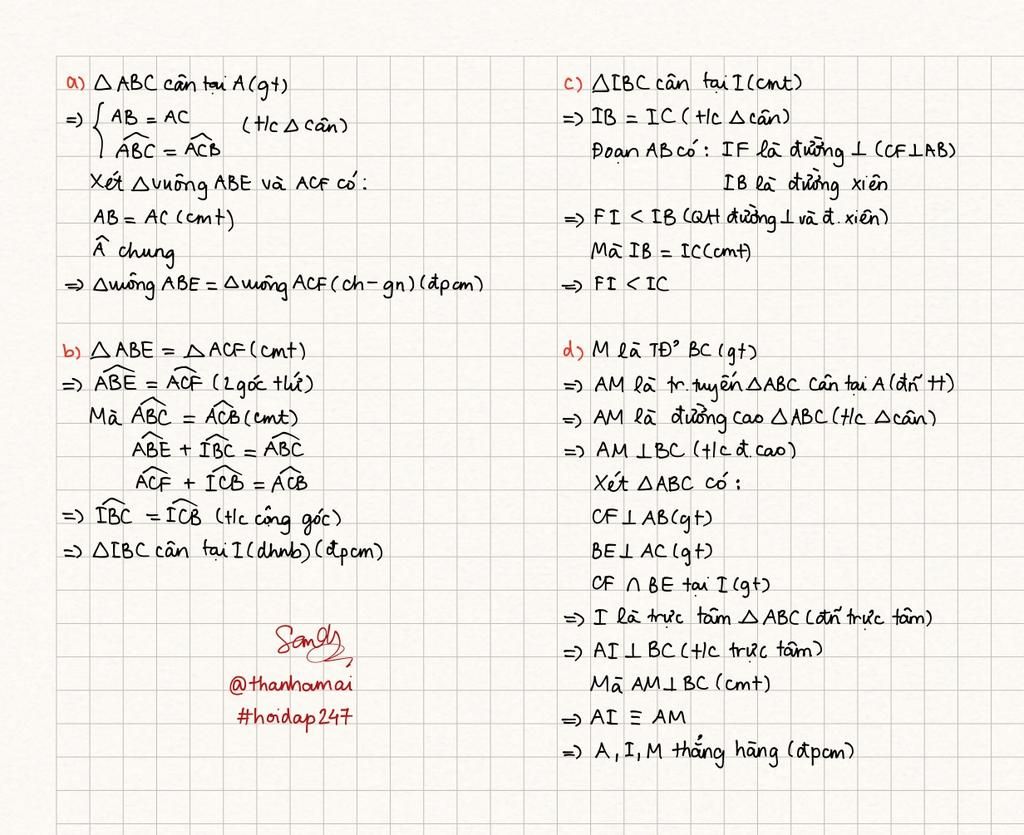 a) △ABC cân tại A(gt)
=> { AB = AC
ABĈ = ACB̂ (t/c △ cân)
Xét △vuông ABE và ACF có:
AB = AC (cmt)
Â chung
=> △vuông ABE = △vuông ACF (ch-gn) (đpcm)
b) △ABE = △ACF (cmt)
=> ABÊ = ACF̂ (2 góc t/ứ)
Mà ABĈ = ACB̂ (cmt)
ABÊ + IBĈ = ABĈ
ACF̂ + ICB̂ = ACB̂
=> IBĈ = ICB̂ (t/c cộng góc)
=> △IBC cân tại I (dhnb) (đpcm)
Sandy
@thanhamai
#hoidap247
c) △IBC cân tại I (cmt)
=> IB = IC (t/c △ cân)
Đoạn AB có: IF là đường ⊥ (CF⊥AB)
IB là đường xiên
=> FI < IB (QH đường ⊥ và đ. xiên)
Mà IB = IC (cmt)
=> FI < IC
d) M là TĐ' BC (gt)
=> AM là tr. tuyến △ABC cân tại A (đn tt)
=> AM là đường cao △ABC (t/c △cân)
=> AM ⊥ BC (t/c đ. cao)
Xét △ABC có:
CF ⊥ AB (gt)
BE ⊥ AC (gt)
CF ∩ BE tại I (gt)
=> I là trực tâm △ABC (đn trực tâm)
=> AI ⊥ BC (t/c trực tâm)
Mà AM ⊥ BC (cmt)
=> AI ≡ AM
=> A, I, M thẳng hàng (đpcm)